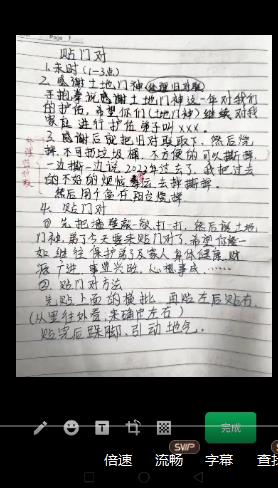 贴门对
1.未时(1-3点)
2.感谢土地门神(处理旧对联)
手抱拳说感谢土地门神这一年对我们
的护佑,希望你们(土地门神)继续对我
家庭进行护佑弟子叫xxx。
3.感谢后就把旧对联取下,然后烧
掉,不可扔垃圾桶,不方便的可以撕掉,
一边撕一边说,2022年过去了,我把过去
的不好的烦恼
去掉撕掉。
4.贴门对
①先把墙壁敲一敲,打一打,然后说土地
门神,弟子今天要来贴门对了,希望你能一
如继往保护弟子及家人身体健康,财
源广进,事业兴旺,心想事成......
②贴门对方法
先贴上面的横批,再贴左后贴右,
(从里往外看,来确定左右)
贴完后跺脚,引动地气。
完成
SVIP
SVIP
倍速
流畅
字幕
查找